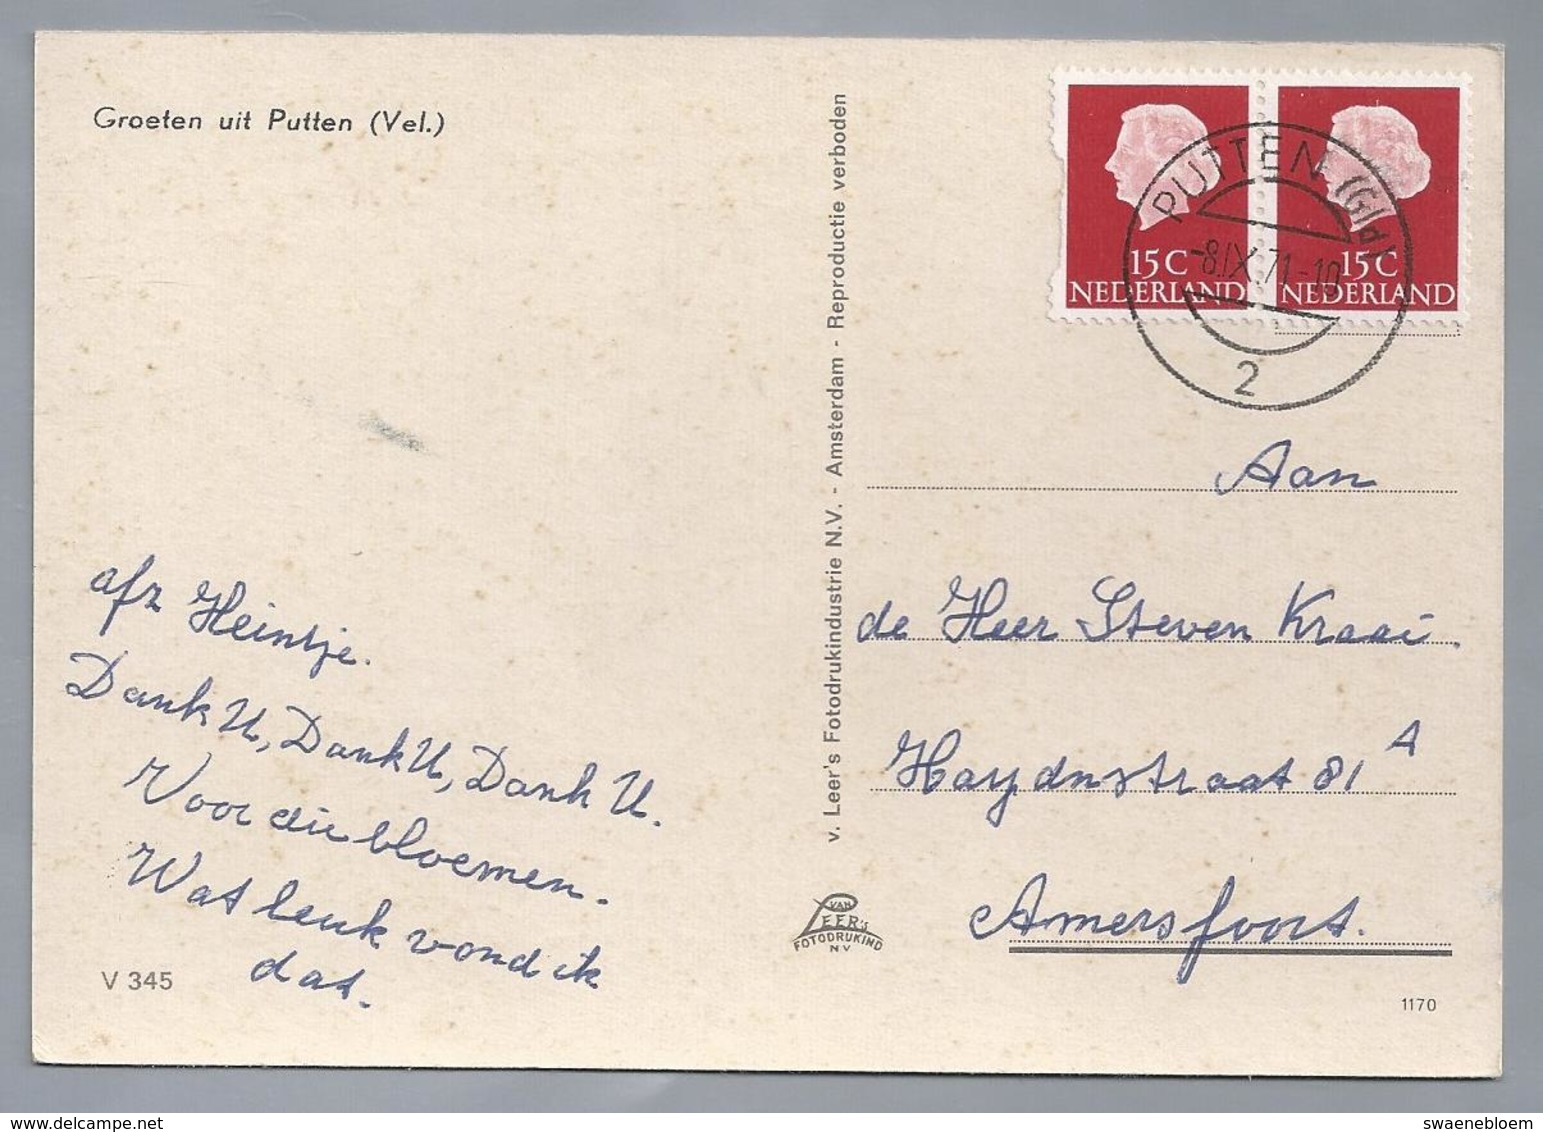 Groeten uit Putten (Vel.)
afz Heintje.
Dank U, Dank U, Dank U.
Voor die bloemen.
Wat leuk vond ik
dat.
V 345
v. Leer's Fotodrukindustrie N.V. - Amsterdam - Reproductie verboden
VAN
LEER'S
FOTODRUKIND
NV
15 C
NEDERLAND
15 C
NEDERLAND
PUTTEN (Gld)
-8.IX.71-10
2
Aan
de Heer Steven Kraai.
Haydnstraat 81 A
Amersfoort.
1170
www.delcampe.net
swaenebloem